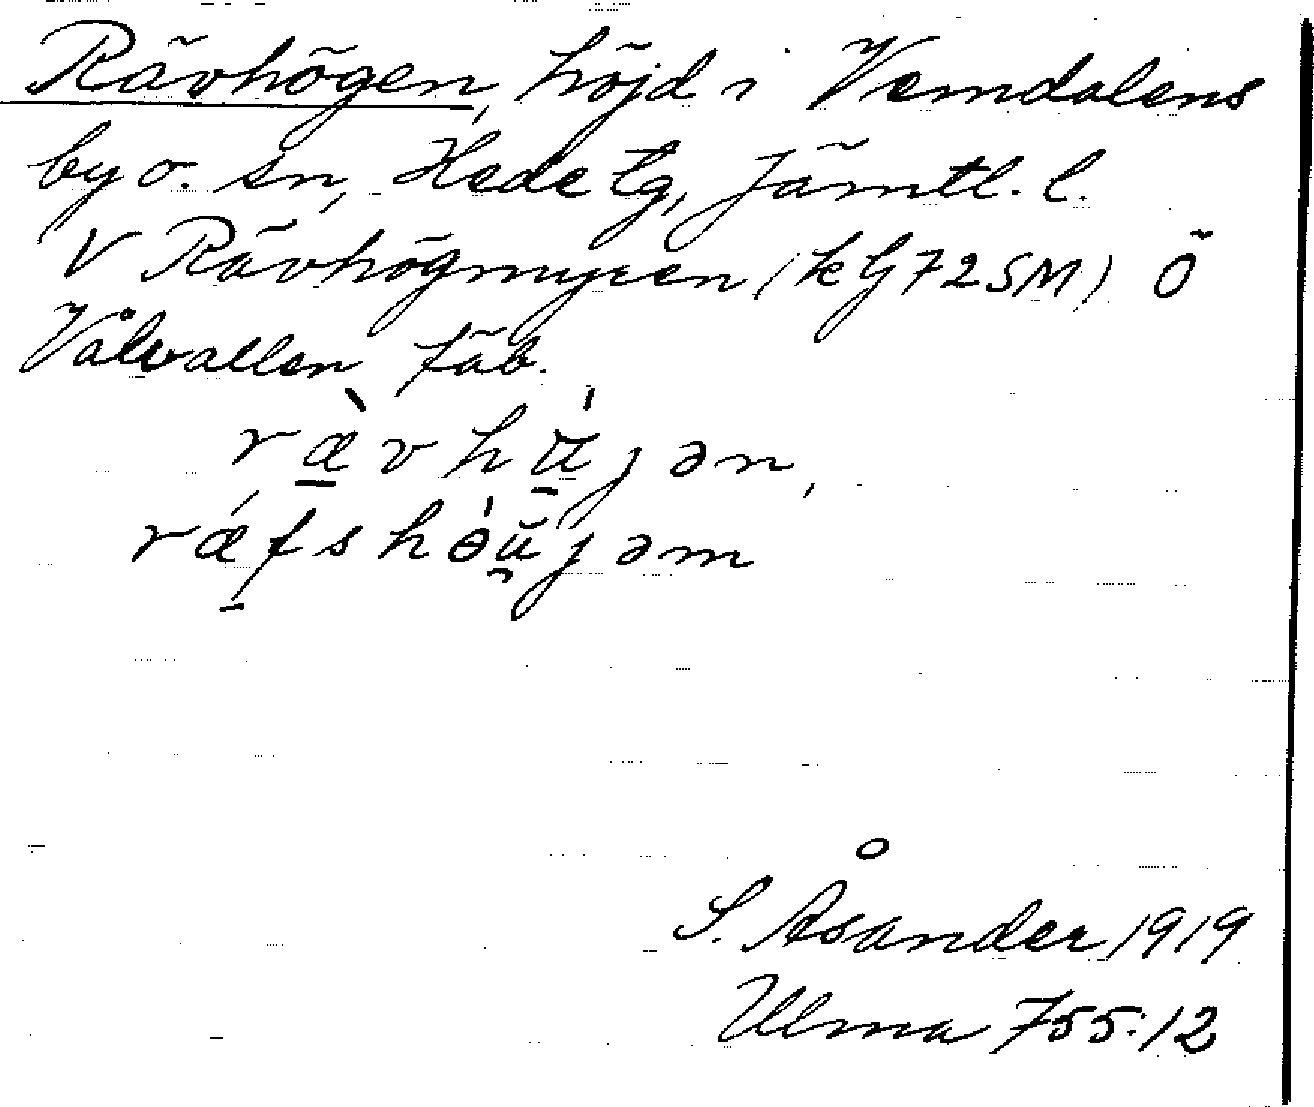 Rävhögen, höjd i Vemdalens
by o. sn, Hede tg, Jämtl. l.
V Rävhögmyren (kfj 72 SM) Ö
Vålvallen fäb.
ræ̀vhu̯jən,
rǽfshɵu̯jəm
S. Åsander 1919
Ulma 755:12